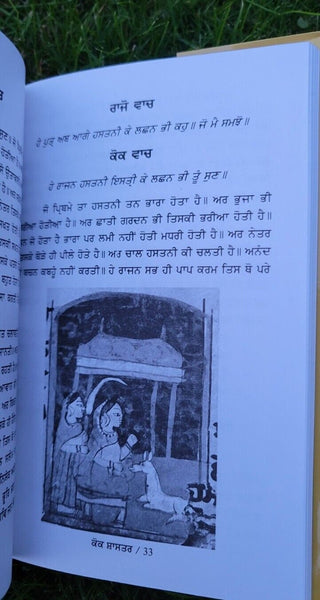 ਰਾਜੋ ਵਾਚ
ਹੇ ਪੁਤ੍ਰ ਅਬ ਆਗੇ ਹਸਤਨੀ ਕੇ ਲਛਨ ਭੀ ਕਹੁ॥ ਜੋ ਮੈ ਸਮਝੋ॥
ਕੋਕ ਵਾਚ
ਹੇ ਰਾਜਨ ਹਸਤਨੀ ਇਸਤ੍ਰੀ ਕੇ ਲਛਨ ਭੀ ਤੂੰ ਸੁਣ॥
ਜੋ ਪ੍ਰਿਥਮੇ ਤਾ ਹਸਤਨੀ ਤਨ ਭਾਰਾ ਹੋਤਾ ਹੈ॥ ਅਰ ਭੁਜਾ ਭੀ
ਹੋਤੀਆ ਹੈ॥ ਅਰ ਛਾਤੀ ਗਰਦਨ ਭੀ ਤਿਸਕੀ ਭਰੀਆ ਹੋਤੀ ਹੈ॥
ਜੋ ਹੋਤਾ ਹੈ ਭਾਰਾ ਪਰ ਲਮੀ ਨਹੀਂ ਹੋਤੀ ਮਧਰੀ ਹੋਤੀ ਹੈ॥ ਅਰ ਨੇਤਰ
ਥੋੜੇ ਹੀ ਪੀਲੇ ਹੋਤੇ ਹੈ॥ ਅਰ ਚਾਲ ਹਸਤਨੀ ਕੀ ਚਲਤੀ ਹੈ॥ ਅਨੰਦ
ਬਚਨ ਕਬਹੂੰ ਨਹੀਂ ਕਰਤੀ॥ ਹੇ ਰਾਜਨ ਸਭ ਹੀ ਪਾਪ ਕਰਮ ਤਿਸ ਥੋ ਪਰੇ
ਕੋਕ ਸ਼ਾਸਤਰ / 33